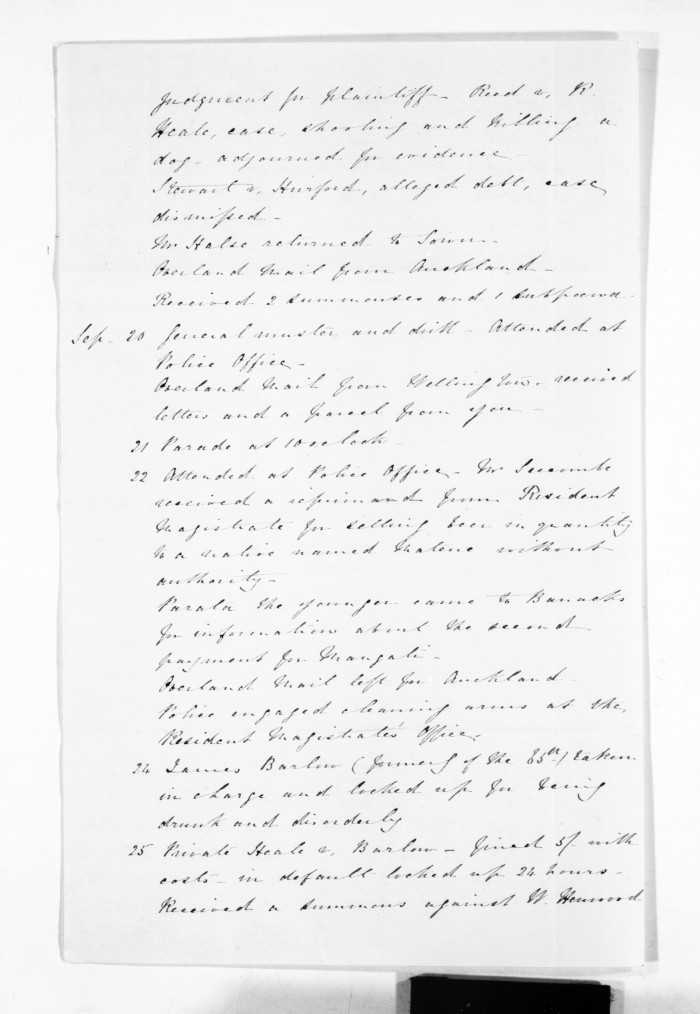 Judgment for Plaintiff - Reed v. R.
Heale, case, shooting and killing a
dog - adjourned for evidence -
Stewart v. Hursford, alleged debt, case
dismissed -
Mr Halse returned to Town -
Overland Mail from Auckland -
Received 2 summonses and 1 subpoena -
Sep. 20 General muster and drill - Attended at
Police Office -
Overland Mail from Wellington - received
letters and a parcel from you -
21 Parade at 10 o'clock -
22 Attended at Police Office - Mr Seccombe
received a reprimand from Resident
Magistrate for selling beer in quantity
to a native named Matene without
authority -
Parata the younger came to Barracks
for information about the second
payment for Mangati -
Overland Mail left for Auckland -
Police engaged cleaning arms at the
Resident Magistrate's Office.
24 James Barlow (formerly of the 65th) taken
in charge and locked up for being
drunk and disorderly
25 Private Heale v. Barlow - fined 5/- with
costs - in default locked up 24 hours -
Received a summons against W. Henwood